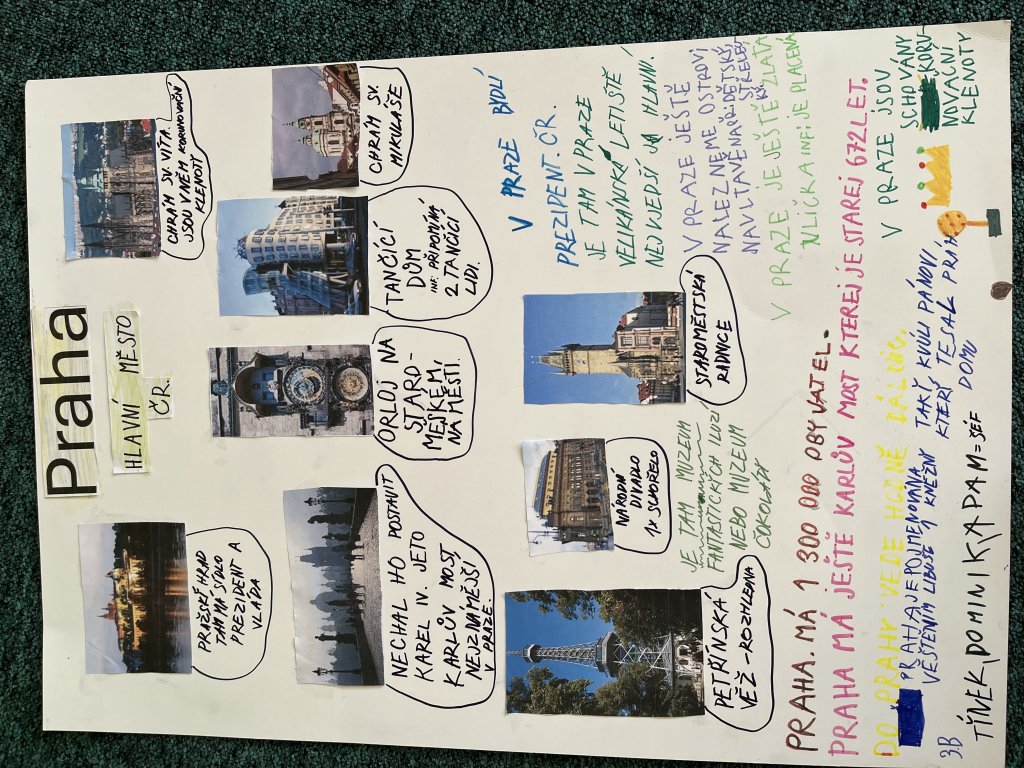 Praha
HLAVNÍ MĚSTO
ČR.
PRAŽSKÉ HRAD
TAM MÁ SÍDLO
PREZIDENT A
VLÁDA
CHRÁM SV. VÍTA.
JSOU V NĚM KORUNOVAČNÍ
KLENOTY
NECHAL HO POSTAVIT
KAREL IV. JETO
KARLŮV MOST,
NEJZNÁMĚJŠÍ
V PRAZE.
ORLOJ NA
STARO-
MĚSKÉM,
NÁMĚSTÍ.
TANČÍCÍ
DŮM
INF: PŘIPOMÍNÁ
2 TANČÍCÍ
LIDI.
CHRÁM SV.
MIKULÁŠE
PETŘÍNSKÁ
VĚŽ - ROZHLEDNA
NÁRODNÍ
DIVADLO
1X SHOŘELO
STAROMĚSTSKÁ
RADNICE
JE TAM MUZEUM
FANTASTICKÝCH ILUZÍ
NEBO MUZEUM
ČOKOLÁDY
V PRAZE BYDLÍ
PREZIDENT. ČR.
JE TAM V PRAZE
VELIKÁNSKÁ LETIŠTĚ
NEJVJEDŠÍ JA HLAVNÍ.
V PRAZE JEŠTĚ
NALEZNEME OSTROVI
NAVLTAVĚ NAPŘ: DĚTSKÝ,
STŘELEC
KÝ.
V PRAZE JE JEŠTĚ ZLATÁ
ULIČKA INF: JE PLACENÁ
PRAHA. MÁ 1 300 000 OBYVATEL.
PRAHA MÁ JEŠTĚ KARLŮV MOST KTEREJ JE STAREJ 672 LET.
DO PRAHY VEDE HODNĚ DÁLNIC.
PRAHA JE POJMENOVANÁ TAKŠ KVULI PÁNOVI,
VĚŠTĚNÍM LIBUŠE 1 KNĚŽNÍ KTERÝ TESAL PRÁH
DOMU
V PRAZE JSOU
SCHOVÁNY
KORU-
NOVAČNÍ
KLENOTY
3.B
TÍNEK, DOMINIK A PAM = ŠÉF